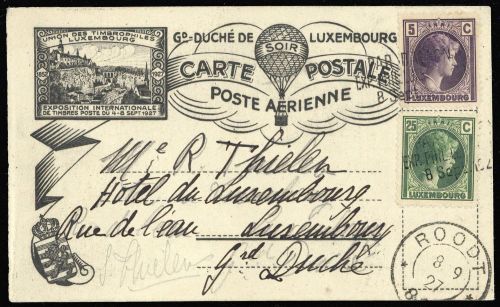 UNION DES TIMBROPHILES
LUXEMBOURG
EXPOSITION INTERNATIONALE
DE TIMBRES POSTE DU 4-8 SEPT 1927
Gᴰ-DUCHÉ DE LUXEMBOURG
SOIR
CARTE POSTALE
POSTE AÉRIENNE
5 C
LUXEMBOURG
25 C
LUXEMBOURG
EXP. PHIL
8 Sep
Mᶜ R Thielen
Hôtel du Luxembourg
Rue de l'eau Luxembourg
Gʳᵈ Duché
ROODT
8 9
27
8